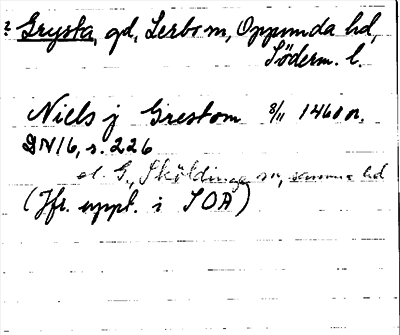 ? Grysta, gd, Lerbo sn, Oppunda hd,
Söderm. l.
Niels j Grestom 8/11 1460 n.
DN 16, s. 226
el. G., Sköldinge sn, samma hd
(Jfr. uppl. i SOA)